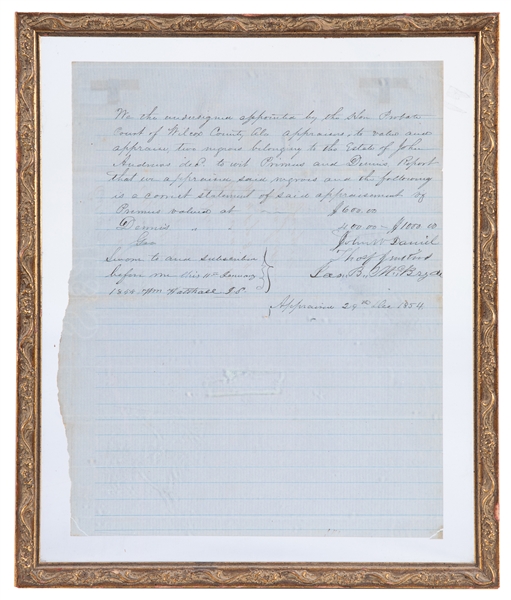 We the undersigned appointed by the Hon Probate
Court of Wilcox County Ala appraisers, to value and
appraise two negroes belonging to the Estate of John
Andrews decd to wit Primus and Dennis Report
that we appraised said negroes and the following
is a correct statement of said appraisement vz
Primus valued at $600.00
Dennis " " 400.00 - $1000.00
John W Daniel
Sworn to and subscribed
before me this 11th January
Jas. B.
Wm.
Appraised 29th Dec 1854